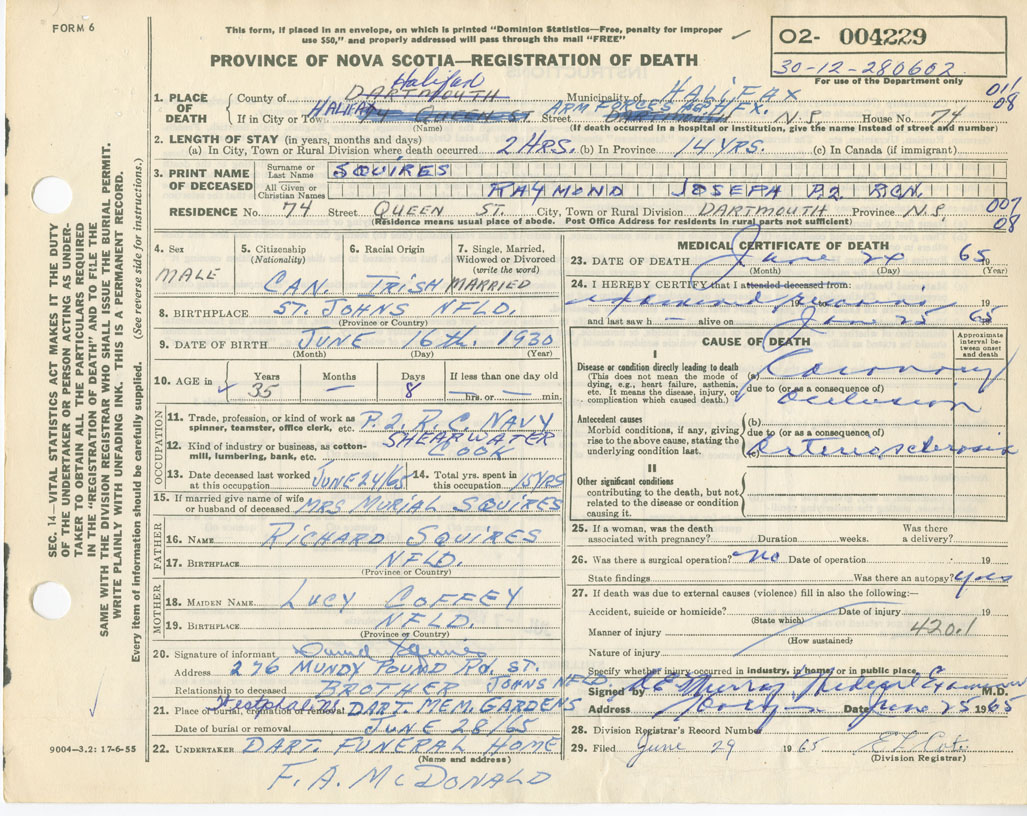 FORM 6
This form, if placed in an envelope, on which is printed "Dominion Statistics—Free, penalty for improper
use $50," and properly addressed will pass through the mail "FREE"
O2- 004229
30-12-280602
For use of the Department only
PROVINCE OF NOVA SCOTIA—REGISTRATION OF DEATH
01/08
Halifax
1. PLACE OF DEATH
County of DARTMOUTH Municipality of HALIFAX
If in City or Town HALIFAX 74 QUEEN ST. Street ARM FORCES HSP. HFX. DARTMOUTH N.S. House No. 74
(Name) (If death occurred in a hospital or institution, give the name instead of street and number)
2. LENGTH OF STAY (in years, months and days)
(a) In City, Town or Rural Division where death occurred 2 HRS. (b) In Province 14 YRS. (c) In Canada (if immigrant)
3. PRINT NAME OF DECEASED
Surname or Last Name SQUIRES
All Given or Christian Names RAYMOND JOSEPH P.2 RCN.
RESIDENCE No. 74 Street QUEEN ST. City, Town or Rural Division DARTMOUTH Province N.S. 007/08
(Residence means usual place of abode. Post Office Address for residents in rural parts not sufficient)
4. Sex MALE
5. Citizenship (Nationality) CAN.
6. Racial Origin IRISH
7. Single, Married, Widowed or Divorced (write the word) MARRIED
8. BIRTHPLACE ST. JOHNS NFLD.
(Province or Country)
9. DATE OF BIRTH JUNE 16th. 1930
(Month) (Day) (Year)
10. AGE in Years 35 Months — Days 8 If less than one day old — hrs. or — min.
OCCUPATION
11. Trade, profession, or kind of work as spinner, teamster, office clerk, etc. P.2 R.C. NAVY
SHEARWATER
12. Kind of industry or business, as cotton-mill, lumbering, bank, etc. COOK
13. Date deceased last worked at this occupation JUNE 24/65
14. Total yrs. spent in this occupation 15 YRS
15. If married give name of wife or husband of deceased MRS MURIAL SQUIRES
FATHER
16. NAME RICHARD SQUIRES
17. BIRTHPLACE NFLD.
(Province or Country)
MOTHER
18. MAIDEN NAME LUCY COFFEY
19. BIRTHPLACE NFLD.
(Province or Country)
20. Signature of informant David Squires
Address 276 MUNDY POUND Rd. ST. JOHNS NFLD
Relationship to deceased BROTHER
21. Place of burial, cremation or removal DART. MEM. GARDENS
Date of burial or removal JUNE 28/65
22. UNDERTAKER DART. FUNERAL HOME
(Name and address)
F. A. McDONALD
MEDICAL CERTIFICATE OF DEATH
23. DATE OF DEATH June 24 1965
(Month) (Day) (Year)
24. I HEREBY CERTIFY that I attended deceased from:
19 to 19
and last saw h — alive on June 25 1965
CAUSE OF DEATH
Approximate interval between onset and death
I
Disease or condition directly leading to death
(This does not mean the mode of dying, e.g., heart failure, asthenia, etc. It means the disease, injury, or complication which caused death.)
(a) Coronary
due to (or as a consequence of)
Occlusion
Antecedent causes
Morbid conditions, if any, giving rise to the above cause, stating the underlying condition last.
(b)
due to (or as a consequence of)
(c) Arteriosclerosis
II
Other significant conditions
contributing to the death, but not related to the disease or condition causing it.
25. If a woman, was the death associated with pregnancy? Duration weeks. Was there a delivery?
26. Was there a surgical operation? No Date of operation 19
State findings Was there an autopsy? Yes
27. If death was due to external causes (violence) fill in also the following:—
Accident, suicide or homicide? Date of injury 19
(State which)
420.1
Manner of injury
(How sustained)
Nature of injury
Specify whether injury occurred in industry, in home or in public place
Signed by Murray Medical Examiner M.D.
Address Date June 25 1965
28. Division Registrar's Record Number
29. Filed June 29 1965
(Division Registrar)
SEC. 14—VITAL STATISTICS ACT MAKES IT THE DUTY
OF THE UNDERTAKER OR PERSON ACTING AS UNDER-
TAKER TO OBTAIN ALL THE PARTICULARS REQUIRED
IN THE "REGISTRATION OF DEATH" AND TO FILE THE
SAME WITH THE DIVISION REGISTRAR WHO SHALL ISSUE THE BURIAL PERMIT.
WRITE PLAINLY WITH UNFADING INK. THIS IS A PERMANENT RECORD.
Every item of information should be carefully supplied. (See reverse side for instructions.)
9004—3.2: 17-6-55